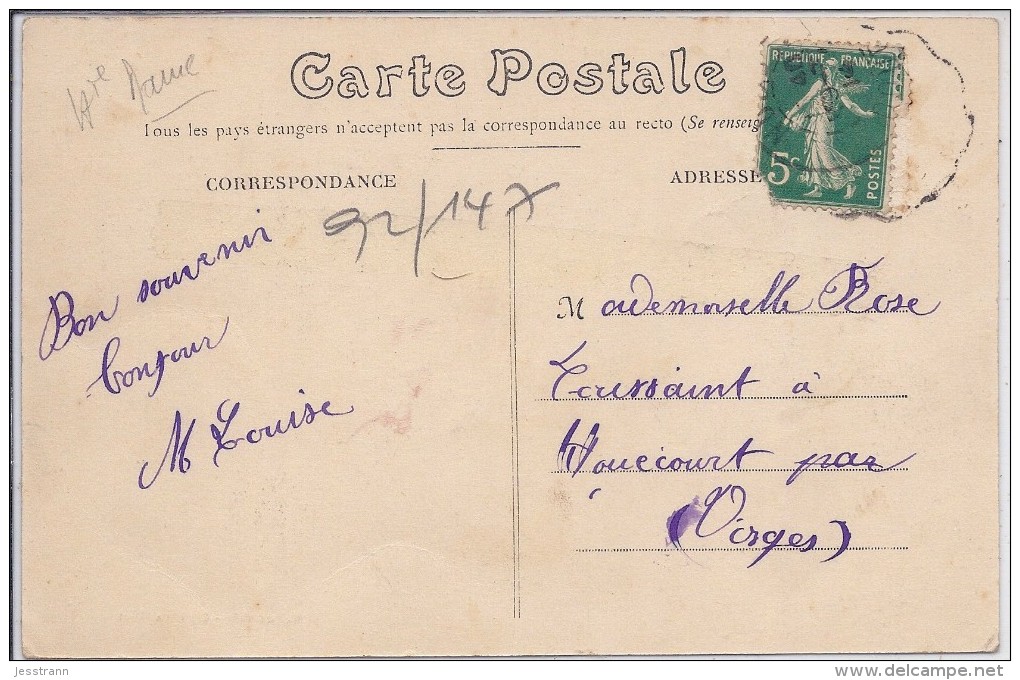 Hte Marne
Carte Postale
Tous les pays étrangers n'acceptent pas la correspondance au recto (Se renseig
CORRESPONDANCE
ADRESSE
RÉPUBLIQUE FRANÇAISE
5c
POSTES
92/147
Bon souvenir
Bonjour
M Louise
Mademoiselle Rose
Toussaint à
Houécourt par
(Vosges)
jesstrann
www.delcampe.net